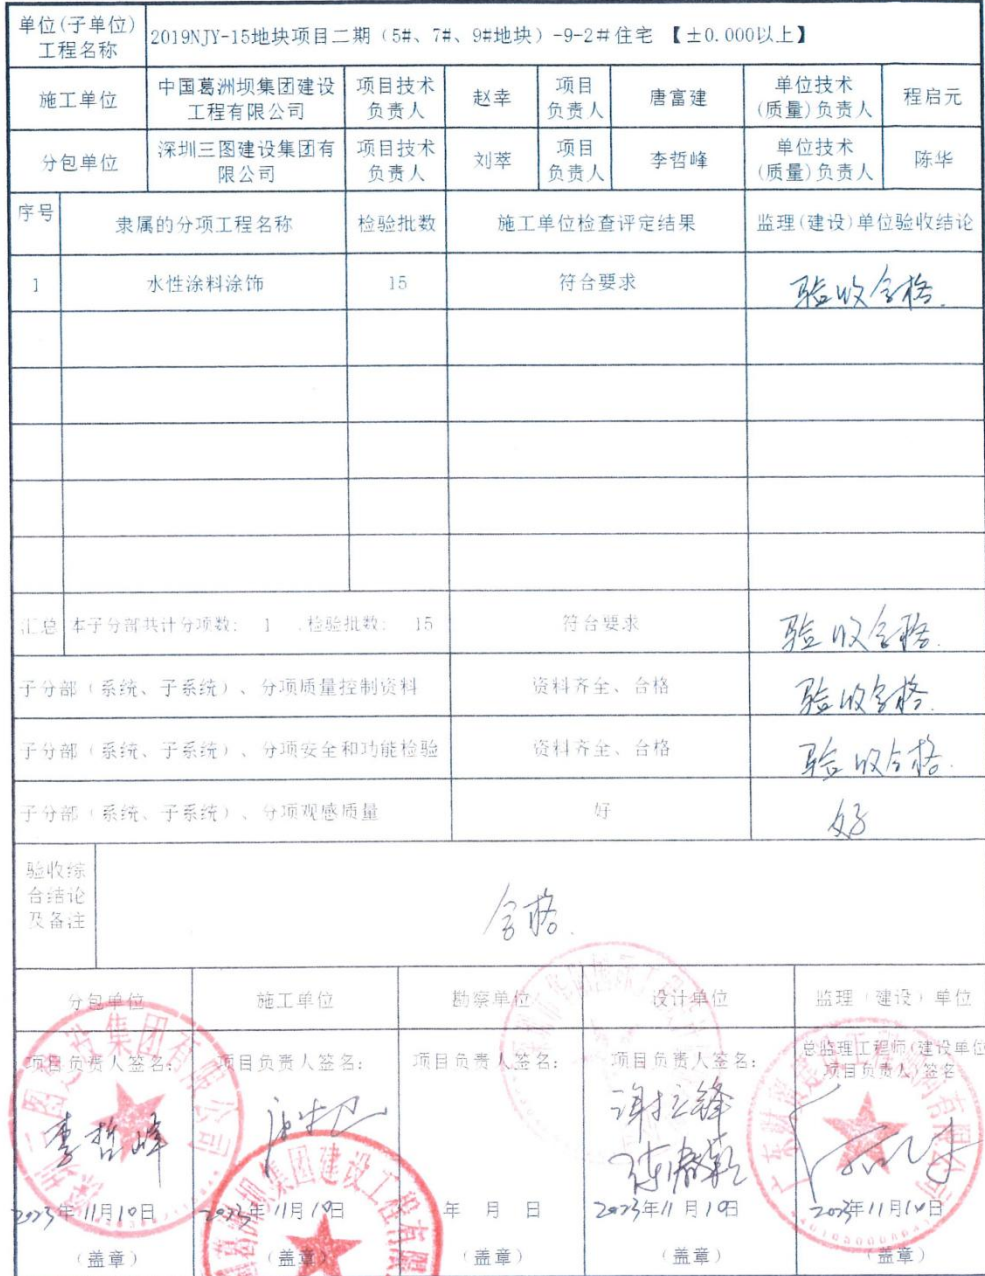 单位(子单位)
工程名称
2019NJY-15地块项目二期（5#、7#、9#地块）-9-2#住宅 【±0.000以上】
施工单位
中国葛洲坝集团建设
工程有限公司
项目技术
负责人
赵幸
项目
负责人
唐富建
单位技术
(质量)负责人
程启元
分包单位
深圳三图建设集团有
限公司
项目技术
负责人
刘莘
项目
负责人
李哲峰
单位技术
(质量)负责人
陈华
序号
隶属的分项工程名称
检验批数
施工单位检查评定结果
监理(建设)单位验收结论
1
水性涂料涂饰
15
符合要求
验收合格.
汇总
本子分部共计分项数: 1 ,检验批数: 15
符合要求
验收合格.
子分部（系统、子系统）、分项质量控制资料
资料齐全、合格
验收合格.
子分部（系统、子系统）、分项安全和功能检验
资料齐全、合格
验收合格.
子分部（系统、子系统）、分项观感质量
好
好
验收综
合结论
及备注
合格.
分包单位
施工单位
勘察单位
设计单位
监理（建设）单位
项目负责人签名:
项目负责人签名:
项目负责人签名:
项目负责人签名:
总监理工程师(建设单位
项目负责人)签名
李哲峰
2023年11月10日
2023年11月10日
年 月 日
2023年11月10日
2023年11月10日
（盖章）
（盖章）
（盖章）
（盖章）
（盖章）